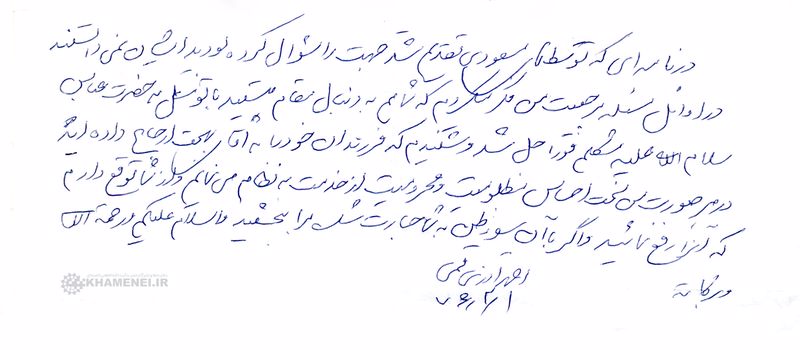 در نامه ای که توسط آقای مسعودی تقدیم شد جهت را سئوال کرده بودید ایشان نمی دانستند
در اوائل مسئله مرجعیت من فکر میکردم که شما هم به دنبال مقام هستید با توسل به حضرت عباس
سلام الله علیه مشکلم فوراً حل شد و شنیدم که فرزندان خود را به آقای بهجت ارجاع داده اید
در هر صورت من تحت احساس مظلومیت و محرومیت از خدمت به نظام می نمایم و از شما توقع دارم
که آنرا رفع نمائید و اگر با آن سوءظن به شما جسارت شد مرا ببخشید والسلام علیکم و رحمة الله
و برکاته
احمد آذری قمی
KHAMENEI.IR